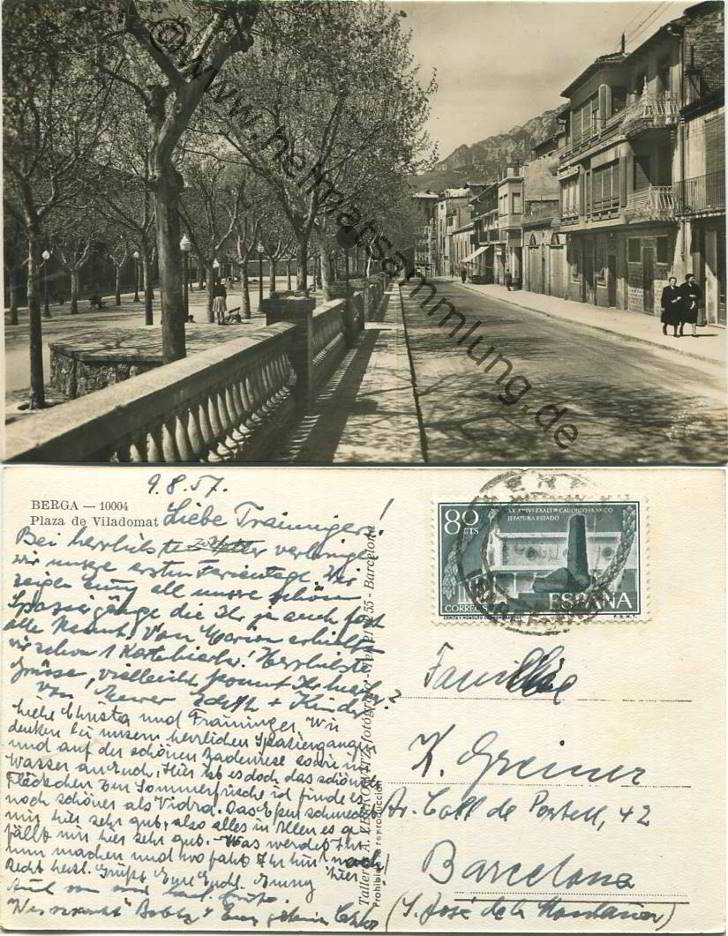 © www.heimatsammlung.de
BERGA — 10004
Plaza de Viladomat
9.8.57.
Liebe Traininger!
Bei herrlichstem Wetter verbringen
wir unsere ersten Ferientage. Wir
zeigen Emmy all unsere schönen
Spaziergänge die Ihr ja auch fast
alle kennt. Von Marion erhielten
wir schon 1 Karte hierher! Herrlichste
Grüsse, vielleicht kommt Ihr noch?
Von Eurer Edith + Kinder
Liebe Christa und Traininger, Wir
denken bei unsern herrlichen Spaziergängen
und auf der schönen wiese sowie im
Wasser an Euch. Hier ist es doch das schönste
Fleckchen zur Sommerfrische id finde es
noch schöner als Vidra. Das Essen schmeckt
mir hier sehr gut, also alles in Allem es ge
fällt mir hier sehr gut. - Was werdet Ihr
nun machen und wo fahrt Ihr hin nach hier
Recht herzl. Grüsse Eure
Auch von mir herzl. Grüsse
Talleres A. Barcelona
Prohibida la reproducción
80 CTS
XX ANIVERSARIO CAUDILLO FRANCO
JEFATURA ESTADO
CORREOS
ESPAÑA
Familie
K. Greiner
Av. Coll de Portell, 42
Barcelona
(S. José de la Montaña)